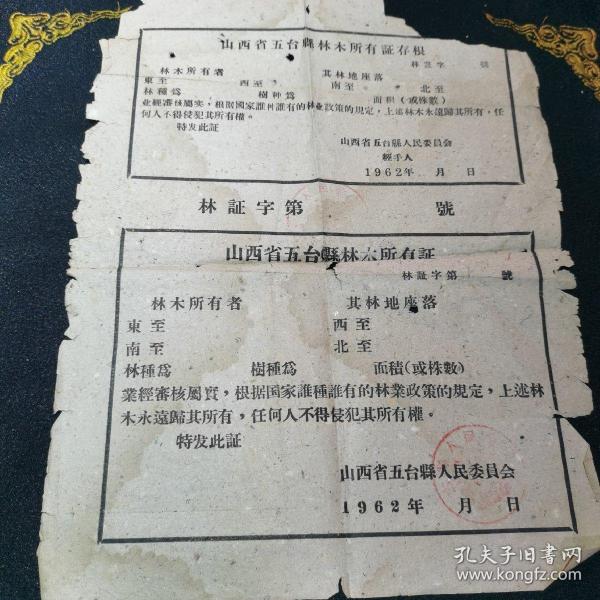 山西省五台縣林木所有証存根
林証字 號
林木所有者 其林地座落
東至 西至 南至 北至
林種爲 樹種爲 面积(或株數)
业經審核屬实，根据國家誰种誰有的林业政策的規定，上述林木永遠歸其所有，任
何人不得侵犯其所有權。
特发此証
山西省五台縣人民委員会
經手人
1962年 月 日
林証字第 號
山西省五台縣林木所有証
林証字第 號
林木所有者 其林地座落
東至 西至
南至 北至
林種爲 樹種爲 面積(或株數)
業經審核屬實，根据国家誰種誰有的林業政策的規定，上述林
木永遠歸其所有，任何人不得侵犯其所有權。
特发此証
山西省五台縣人民委員会
1962年 月 日
孔夫子旧书网
www.kongfz.com